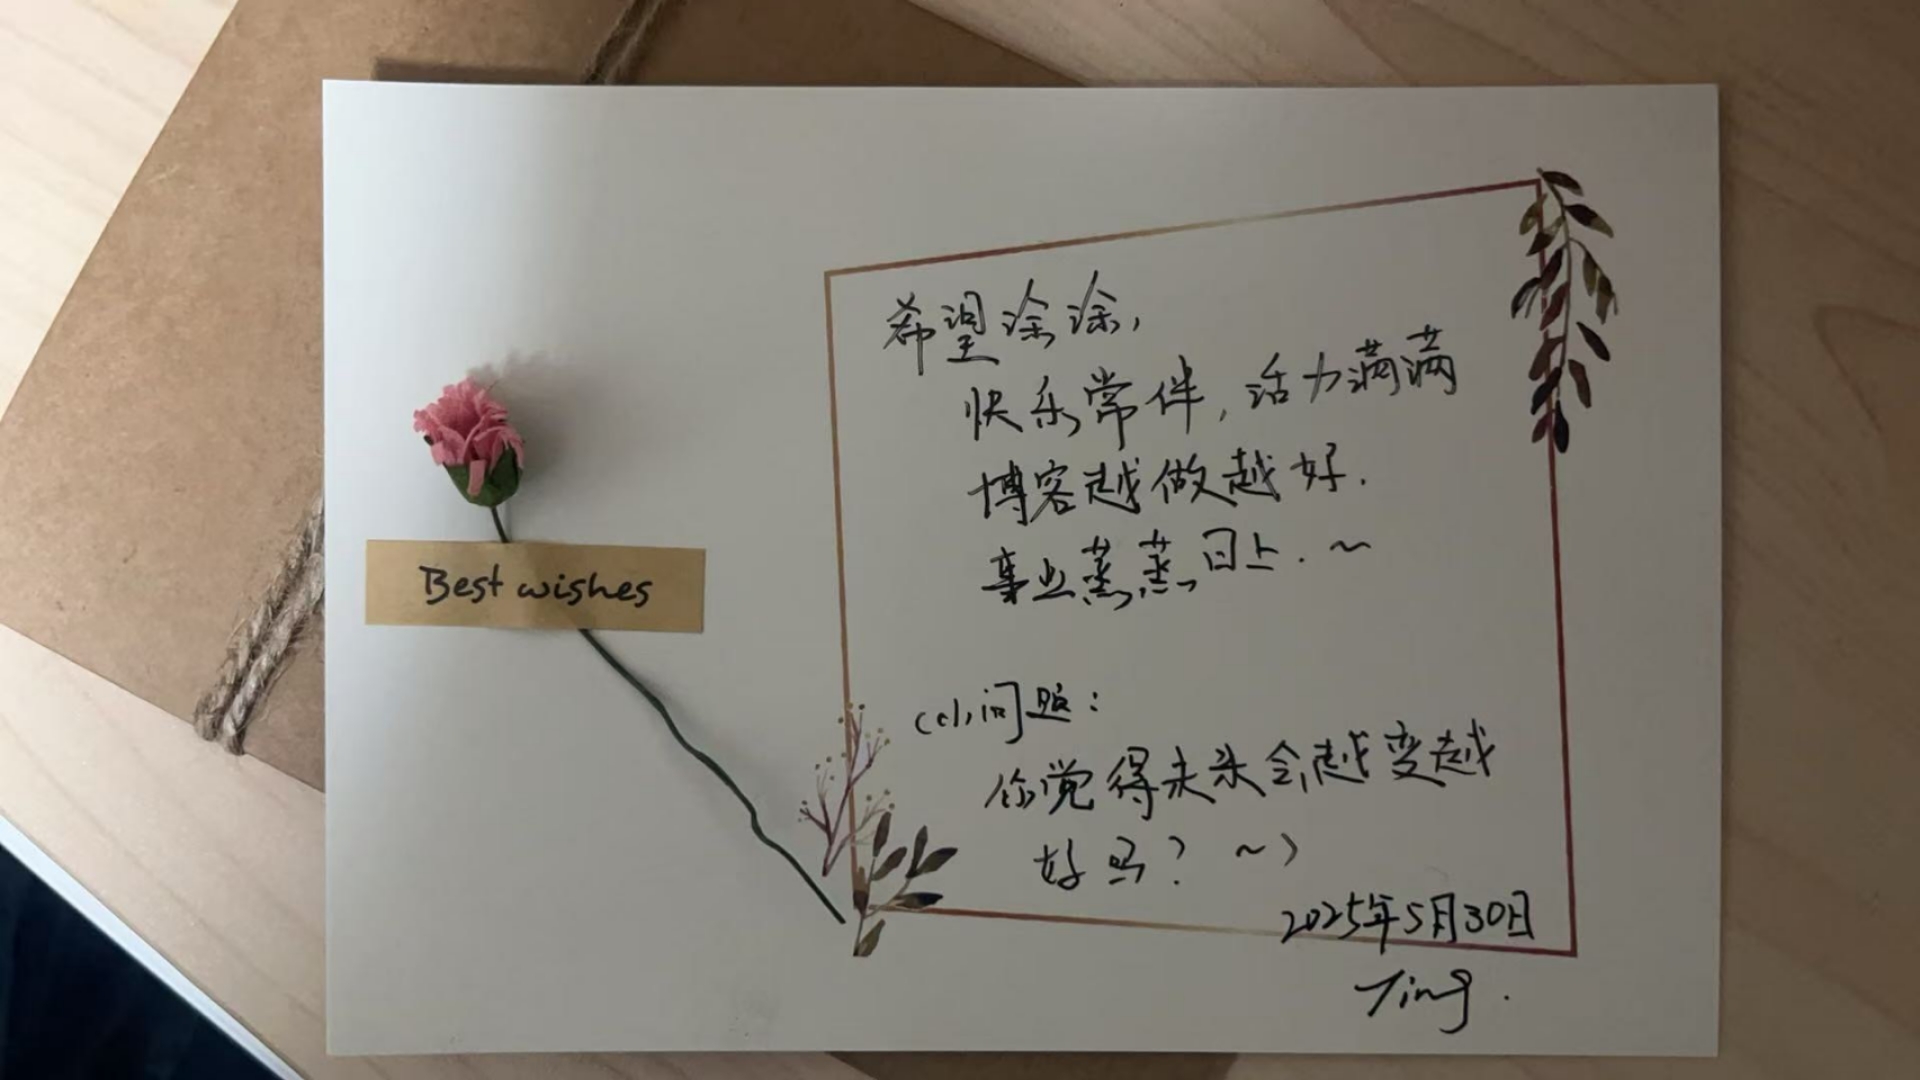 Best wishes
希望涂涂,
快乐常伴,活力满满
博客越做越好.
事业蒸蒸日上.~
(小问题:
你觉得未来会越变越
好吗? ~)
2025年5月30日
Ting.